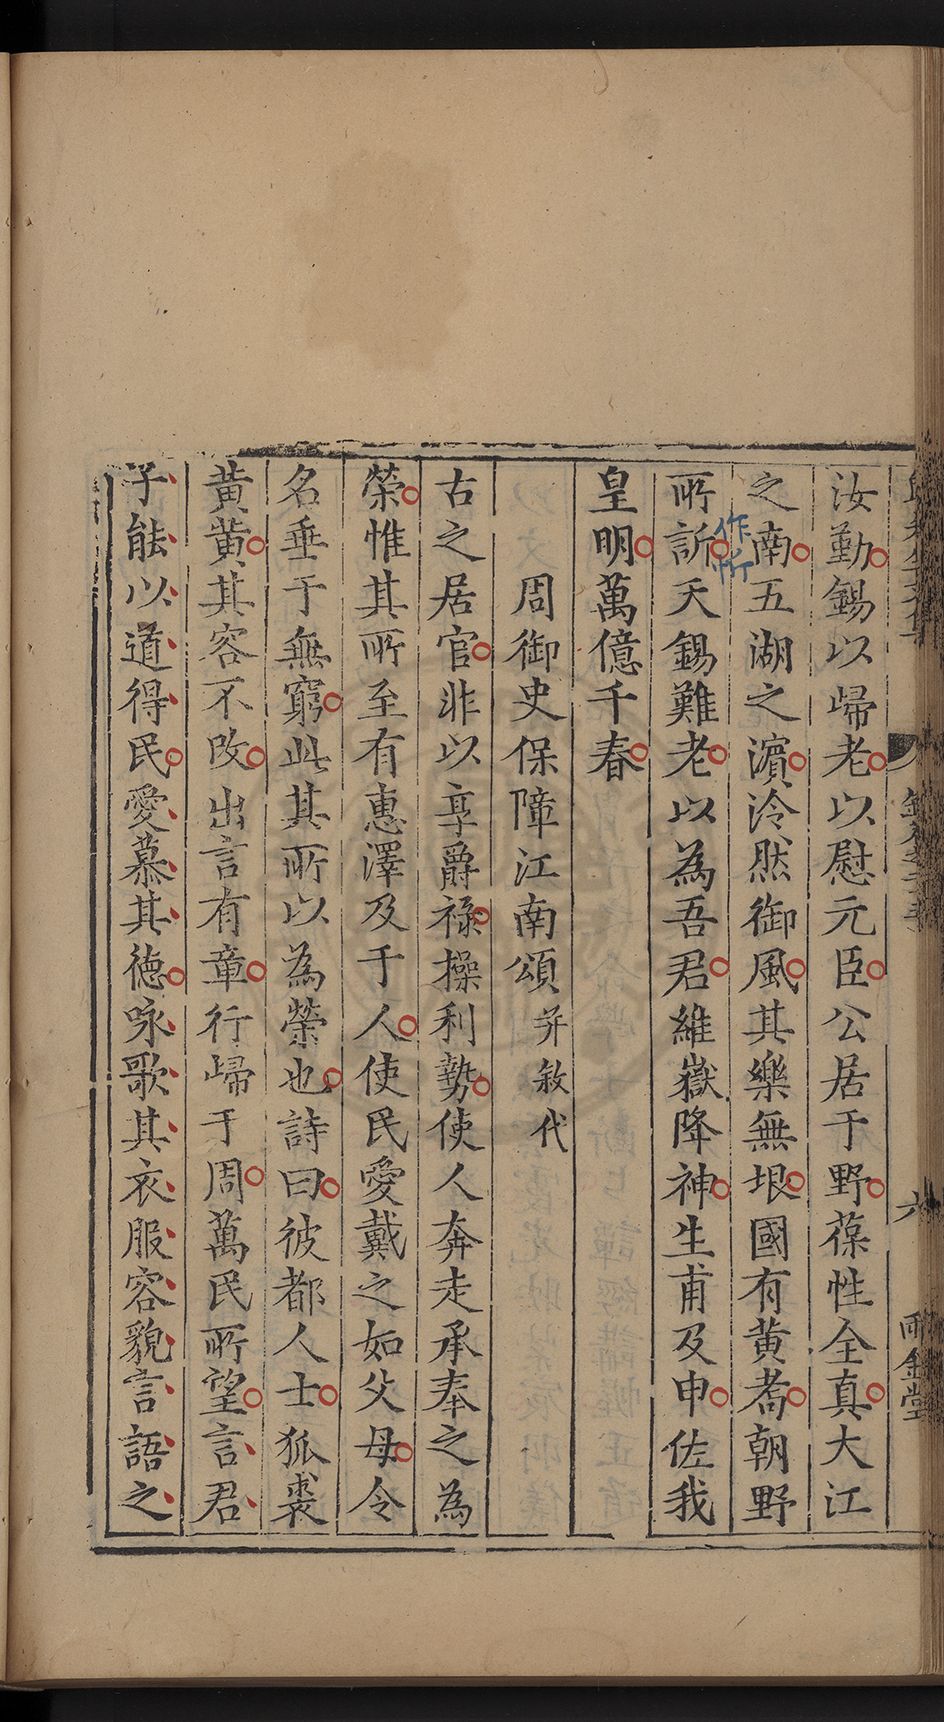 汝勤錫以歸老以慰元臣公居于野葆性全真大江
之南五湖之濵泠然御風其樂無垠國有黄耇朝野
所訴天錫難老以為吾君維嶽降神生甫及申佐我
作忻
皇明萬億千春
周御史保障江南頌 并敘代
古之居官非以享爵祿操利勢使人奔走承奉之為
榮惟其所至有惠澤及于人使民愛戴之如父母令
名垂于無窮此其所以為榮也詩曰彼都人士狐裘
黄黄其容不改出言有章行歸于周萬民所望言君
子能以道得民愛慕其德咏歌其衣服容貌言語之
六
雨金堂